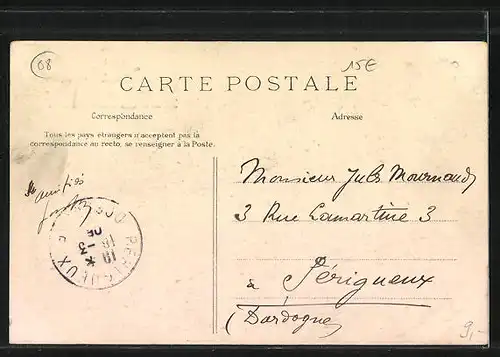 08
15E
CARTE POSTALE
Correspondance
Adresse
Tous les pays étrangers n'acceptent pas la
correspondance au recto, se renseigner à la Poste.
amitiés
Monsieur Jules
3 Rue Lamartine 3
à Périgueux
(Dordogne)
PERIGUEUX
19 *
16 - 3
05
9,-